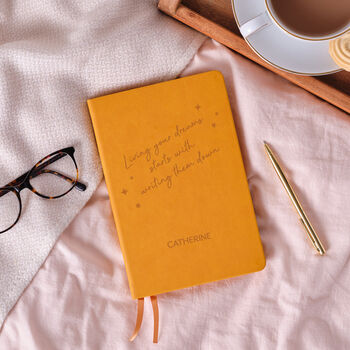 Living your dreams
starts with
writing them down
CATHERINE